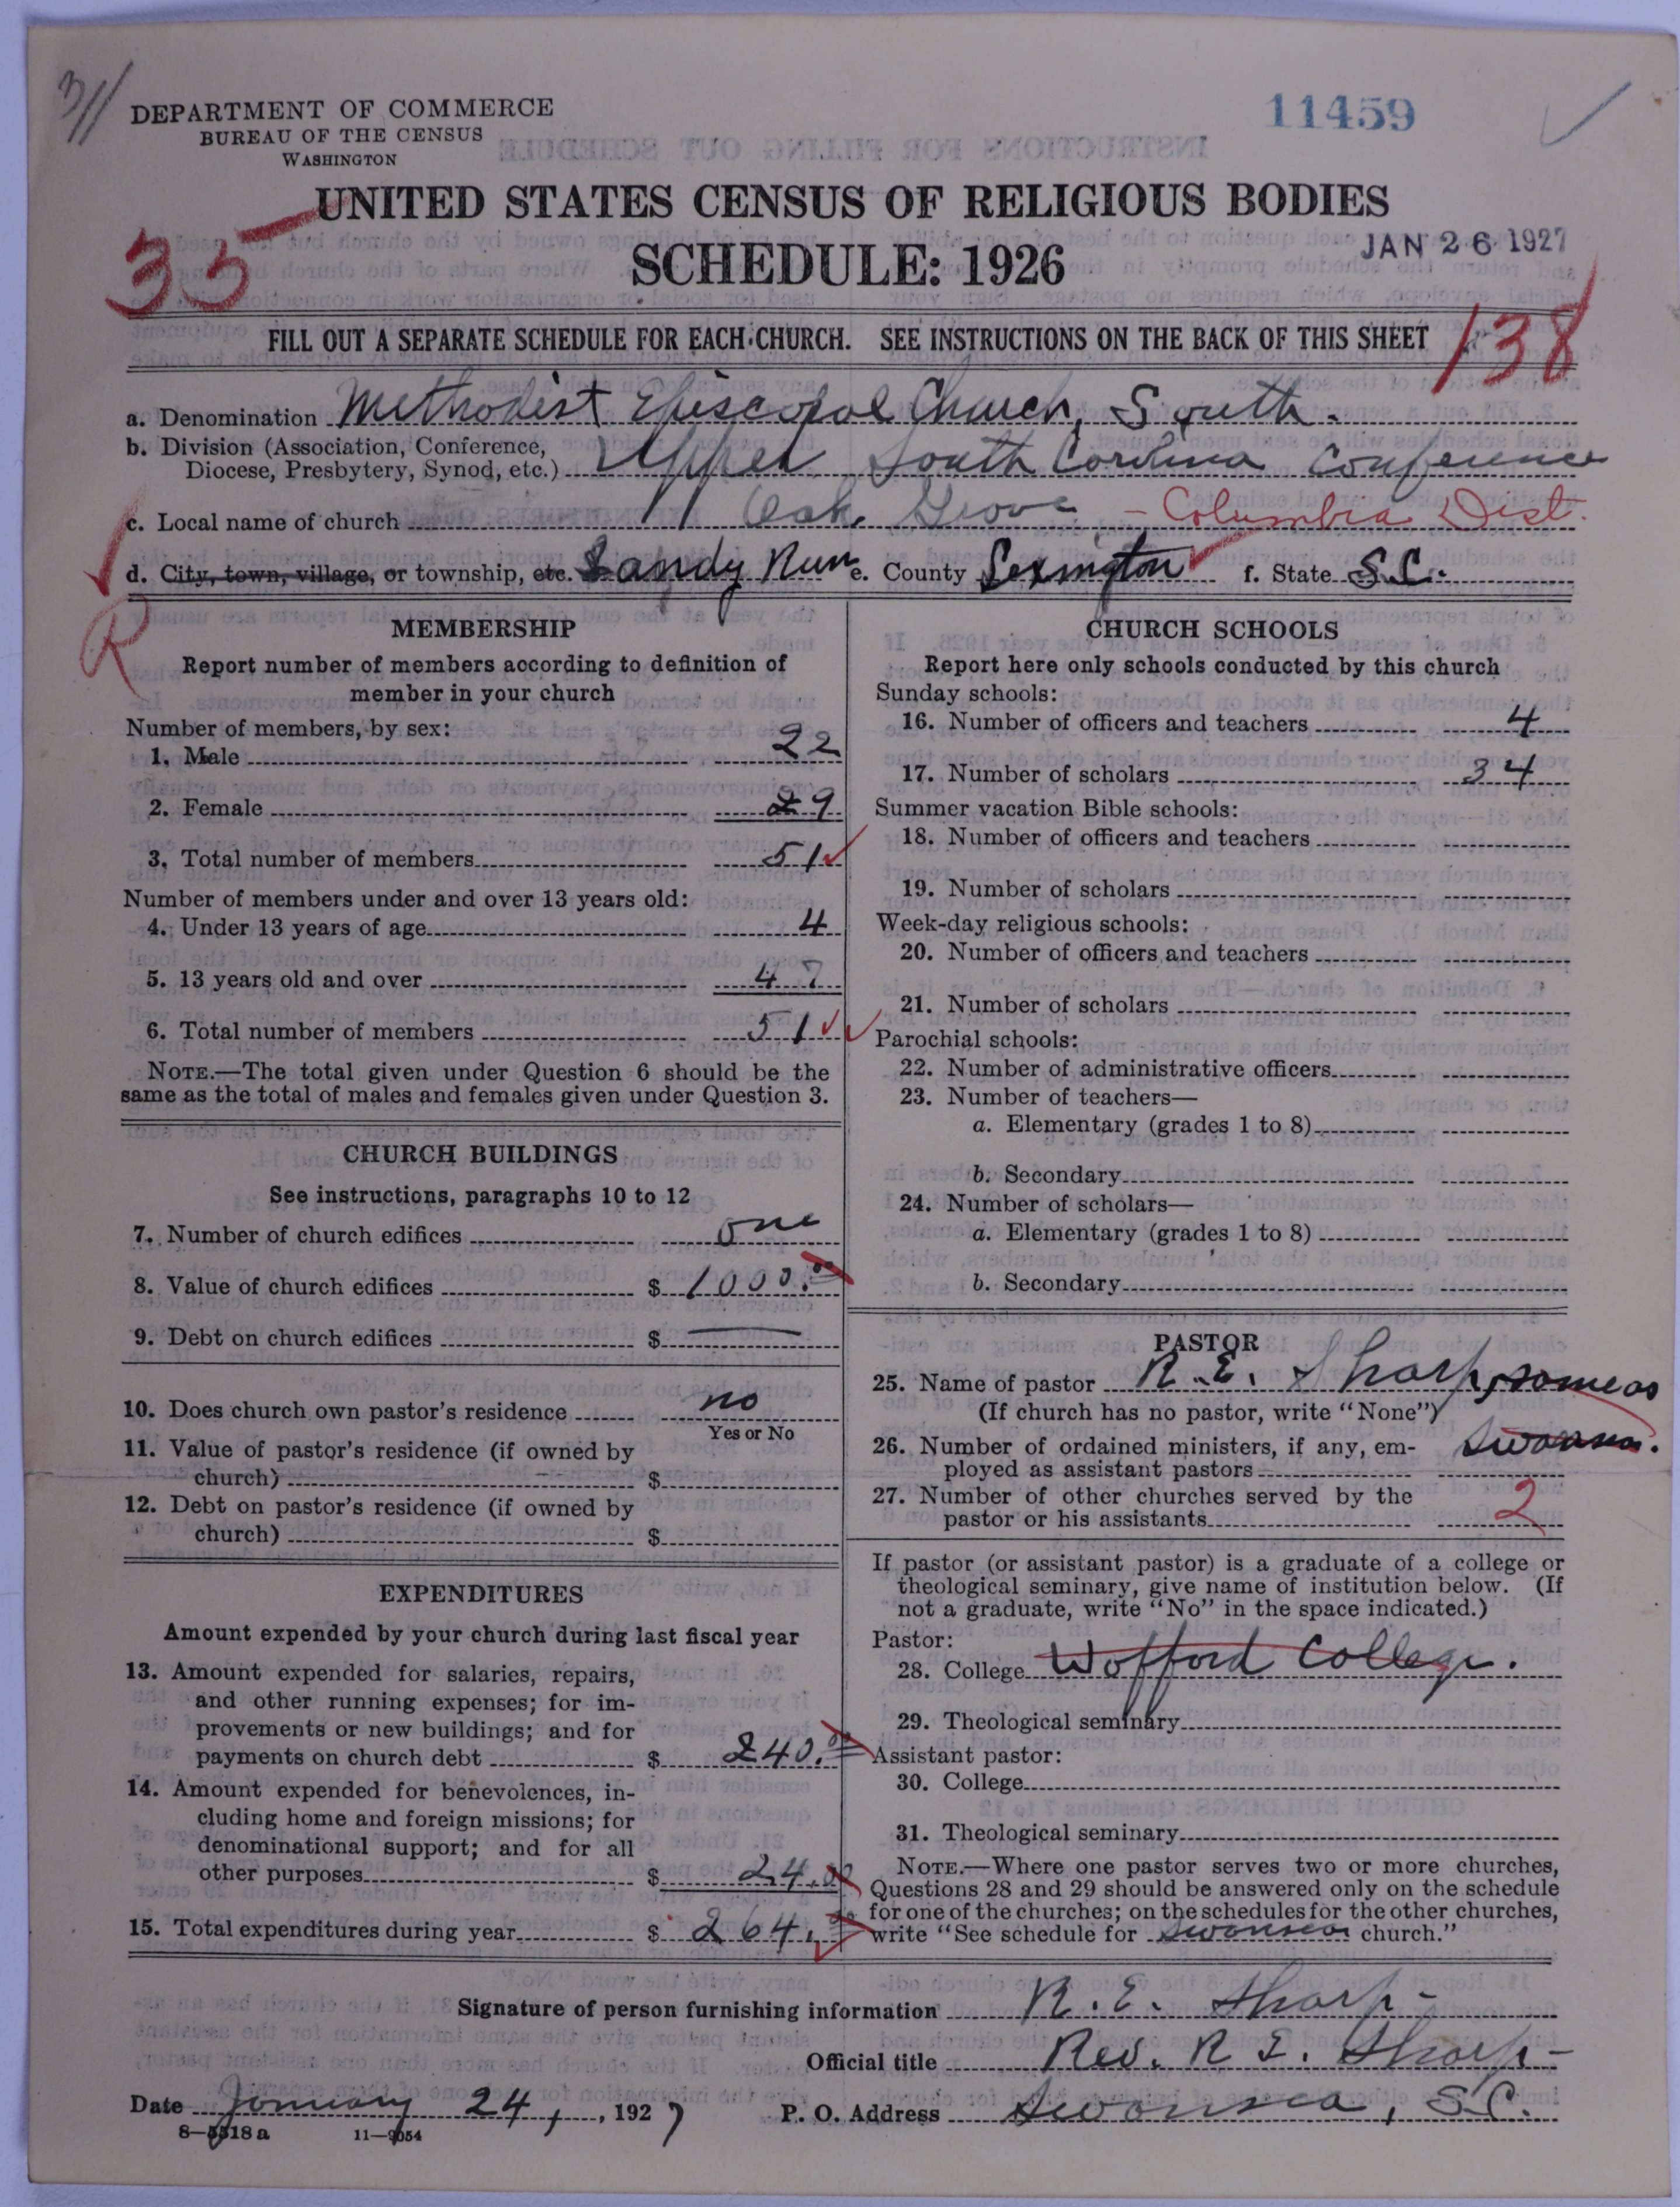 311
DEPARTMENT OF COMMERCE
BUREAU OF THE CENSUS
WASHINGTON
11459
UNITED STATES CENSUS OF RELIGIOUS BODIES
SCHEDULE: 1926
JAN 26 1927
35
138
FILL OUT A SEPARATE SCHEDULE FOR EACH CHURCH. SEE INSTRUCTIONS ON THE BACK OF THIS SHEET
a. Denomination Methodist Episcopal Church, South.
b. Division (Association, Conference,
Diocese, Presbytery, Synod, etc.) Upper South Carolina Conference
c. Local name of church Oak Grove - Columbia Dist.
d. City, town, village, or township, etc. Sandy Run e. County Lexington f. State S.C.
R
MEMBERSHIP
Report number of members according to definition of
member in your church
Number of members, by sex:
1. Male 22
2. Female 29
3. Total number of members 51
Number of members under and over 13 years old:
4. Under 13 years of age 4
5. 13 years old and over 47
6. Total number of members 51
NOTE.—The total given under Question 6 should be the
same as the total of males and females given under Question 3.
CHURCH BUILDINGS
See instructions, paragraphs 10 to 12
7. Number of church edifices one
8. Value of church edifices $ 1000.00
9. Debt on church edifices $ —
10. Does church own pastor's residence no
Yes or No
11. Value of pastor's residence (if owned by
church) $
12. Debt on pastor's residence (if owned by
church) $
EXPENDITURES
Amount expended by your church during last fiscal year
13. Amount expended for salaries, repairs,
and other running expenses; for im-
provements or new buildings; and for
payments on church debt $ 240.00
14. Amount expended for benevolences, in-
cluding home and foreign missions; for
denominational support; and for all
other purposes $ 24.00
15. Total expenditures during year $ 264.00
CHURCH SCHOOLS
Report here only schools conducted by this church
Sunday schools:
16. Number of officers and teachers 4
17. Number of scholars 34
Summer vacation Bible schools:
18. Number of officers and teachers
19. Number of scholars
Week-day religious schools:
20. Number of officers and teachers
21. Number of scholars
Parochial schools:
22. Number of administrative officers
23. Number of teachers—
a. Elementary (grades 1 to 8)
b. Secondary
24. Number of scholars—
a. Elementary (grades 1 to 8)
b. Secondary
PASTOR
25. Name of pastor R. E. Sharp, same as
(If church has no pastor, write "None")
Swansea.
26. Number of ordained ministers, if any, em-
ployed as assistant pastors
27. Number of other churches served by the
pastor or his assistants 2
If pastor (or assistant pastor) is a graduate of a college or
theological seminary, give name of institution below. (If
not a graduate, write "No" in the space indicated.)
Pastor:
28. College Wofford College.
29. Theological seminary
Assistant pastor:
30. College
31. Theological seminary
NOTE.—Where one pastor serves two or more churches,
Questions 28 and 29 should be answered only on the schedule
for one of the churches; on the schedules for the other churches,
write "See schedule for Swansea church."
Signature of person furnishing information R. E. Sharp-
Official title Rev. R E. Sharp-
Date January 24, , 1927 P. O. Address Swansea, S.C.
8—5518a 11—9054